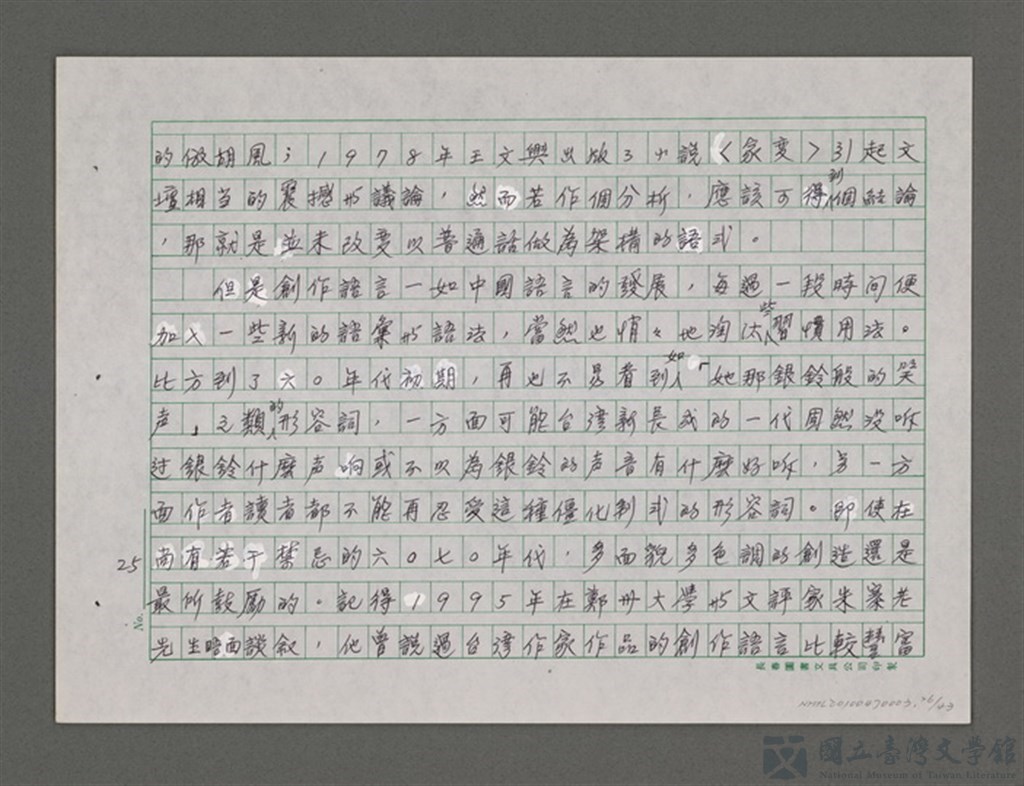 的倣胡風;1978年王文興出版了小說〈家变〉引起文
壇相当的震撼與議論,然而若作個分析,應該可得到個結論
,那就是並未改变以普通話做為架構的語式。
但是創作語言一如中國語言的發展,每過一段時间便
加入一些新的語彙與語法,當然也悄々地淘汰些習慣用法。
比方到了六○年代初期,再也不易看到如「她那銀鈴般的笑
声」之類的形容詞,一方面可能台湾新長成的一代固然没听
过銀鈴什麼声响或不以為銀鈴的声音有什麼好听,另一方
面作者讀者都不能再忍受這種僵化制式的形容詞。即使在
尚有若干禁忌的六○七○年代,多面貌多色調的創造還是
最所鼓励的。記得1995年在鄭州大學與文評家朱寨老
先生晤面談叙,他曾說過台湾作家作品的創作語言比較豐富
25
No.
長春圖書文具公司印製
NMTL20100060003, 26/43
國立臺灣文學館
National Museum of Taiwan Literature